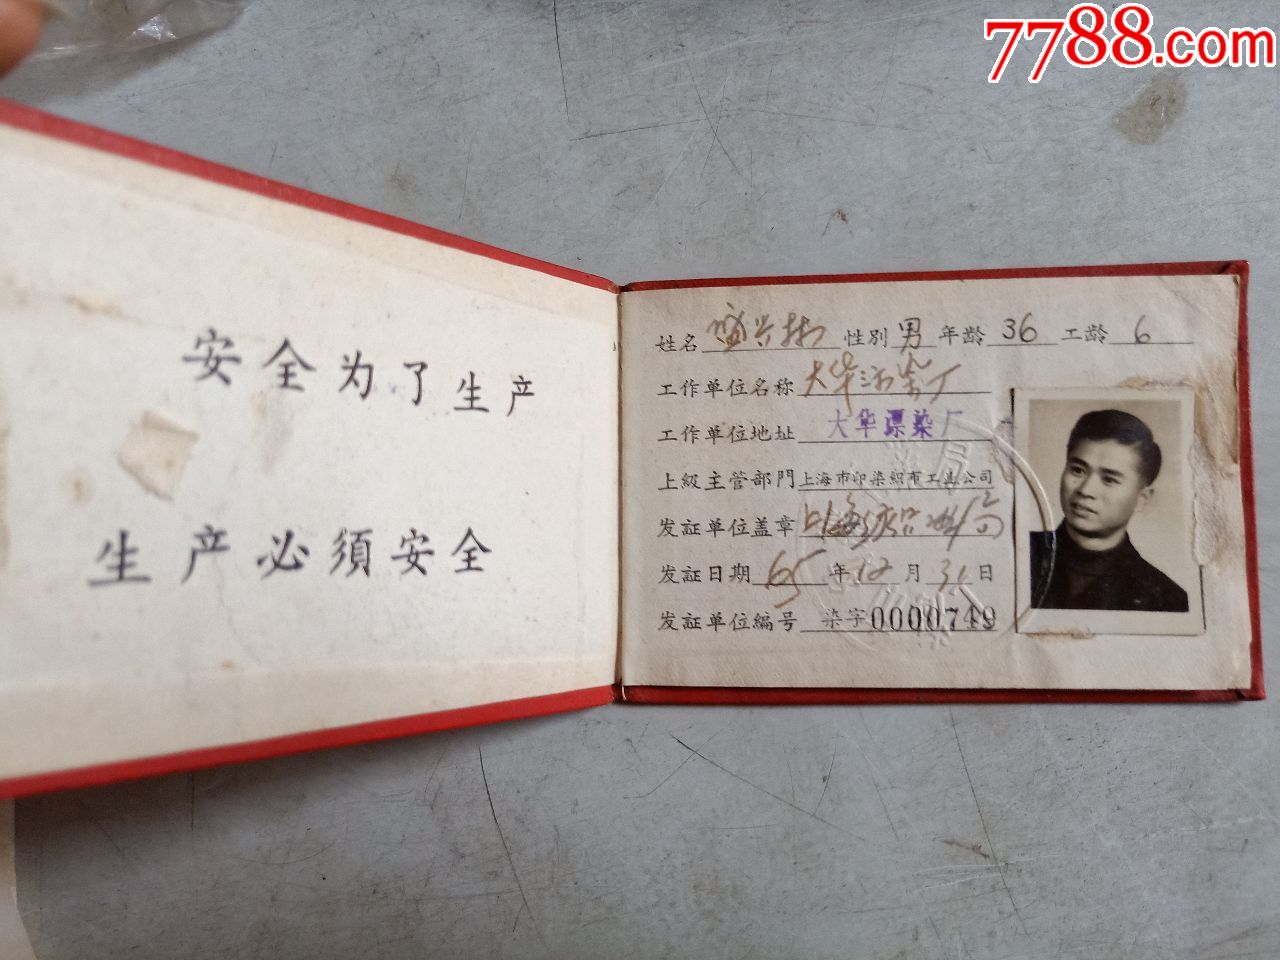 7788.com
安全为了生产
生产必須安全
姓名 盛兴 性别 男 年龄 36 工龄 6
工作单位名称 大华漂染厂
工作单位地址 大华漂染厂
上級主管部門 上海市印染織布工业公司
发証单位盖章 上海 局
发証日期 65 年 12 月 31 日
发証单位編号 染字 0000749